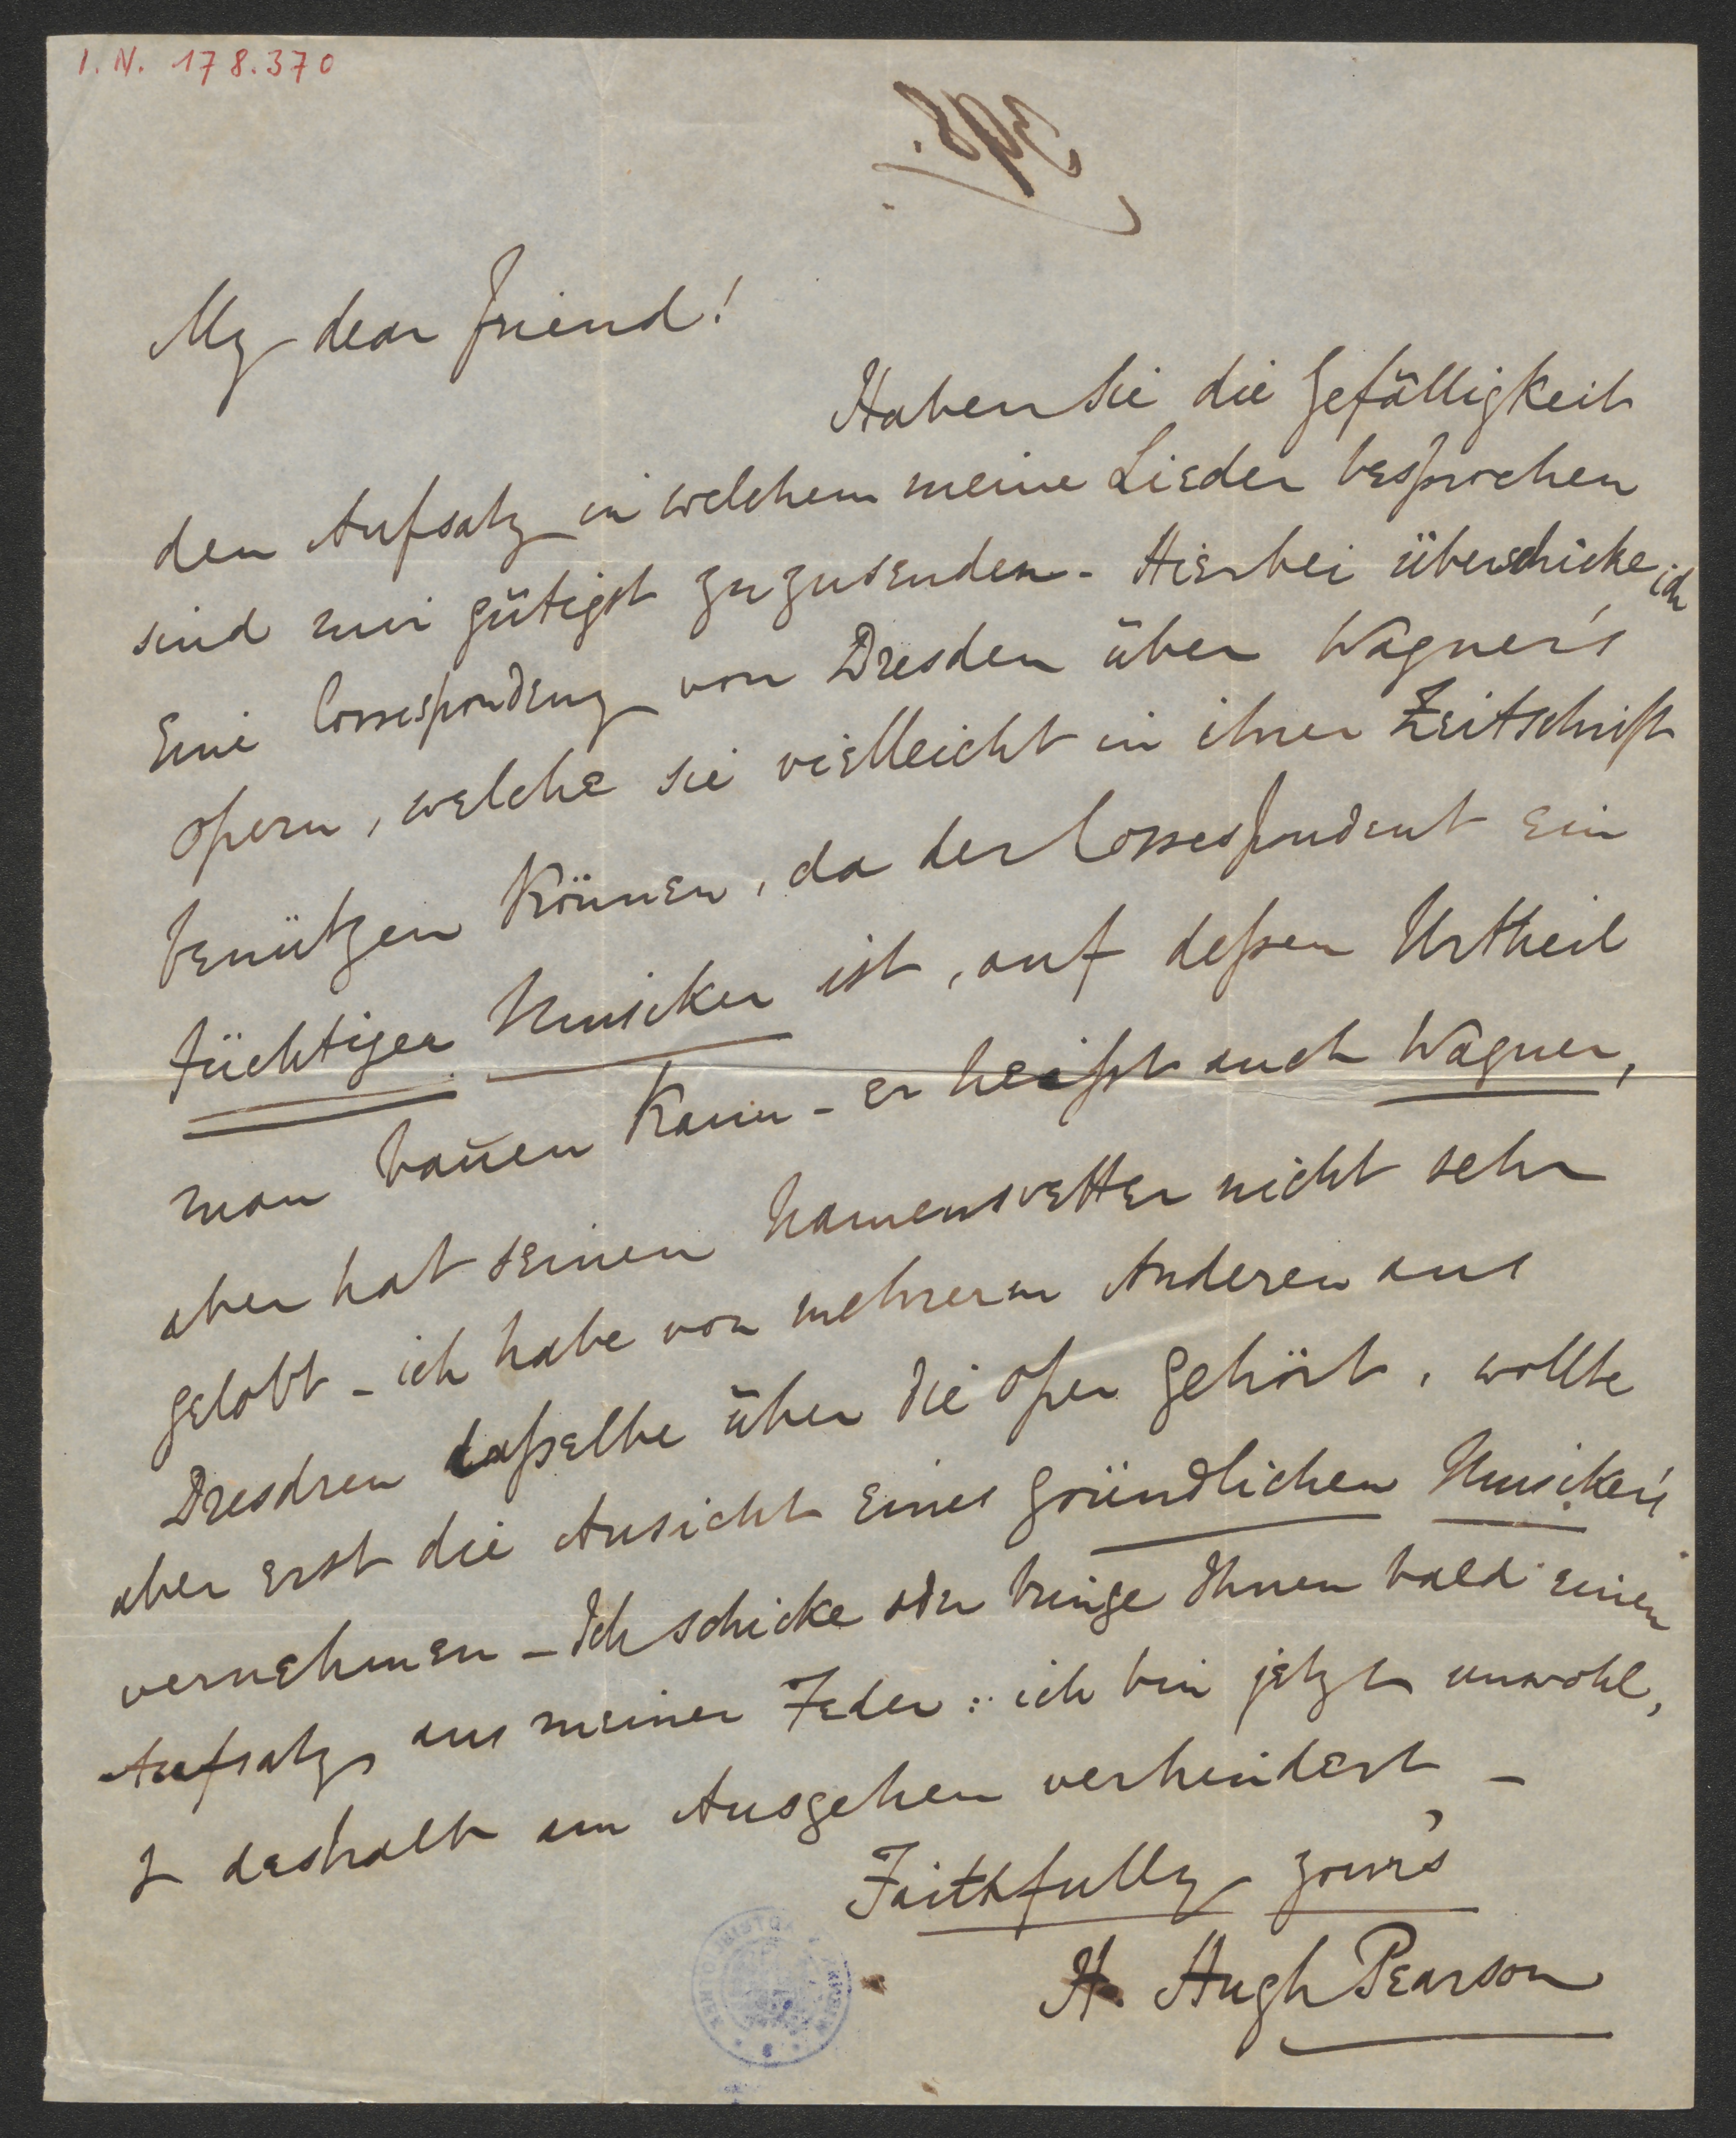 I. N. 178.370
398.
My dear friend!
Haben Sie die Gefälligkeit
den Aufsatz in welchem meine Lieder besprochen
sind mir gütigst zuzusenden - Hierbei überschicke ich
Eine Correspondenz von Dresden über Wagner's
Opern, welche sie vielleicht in ihrer Zeitschrift
benützen können, da der Correspondent ein
tüchtiger Musiker ist, auf deßen Urtheil
man bauen kann - er heißt auch Wagner,
aber hat seinen Namensvetter nicht sehr
gelobt - ich habe von mehreren Anderen aus
Dresdren daßelbe über die Oper gehört, wollte
aber erst die Ansicht eines gründlichen Musiker's
vernehmen - Ich schicke oder bringe Ihnen bald einen
Aufsatz aus meiner Feder: ich bin jetzt unwohl,
& deshalb am Ausgehen verhindert -
Faithfully your's
H. Hugh Pearson